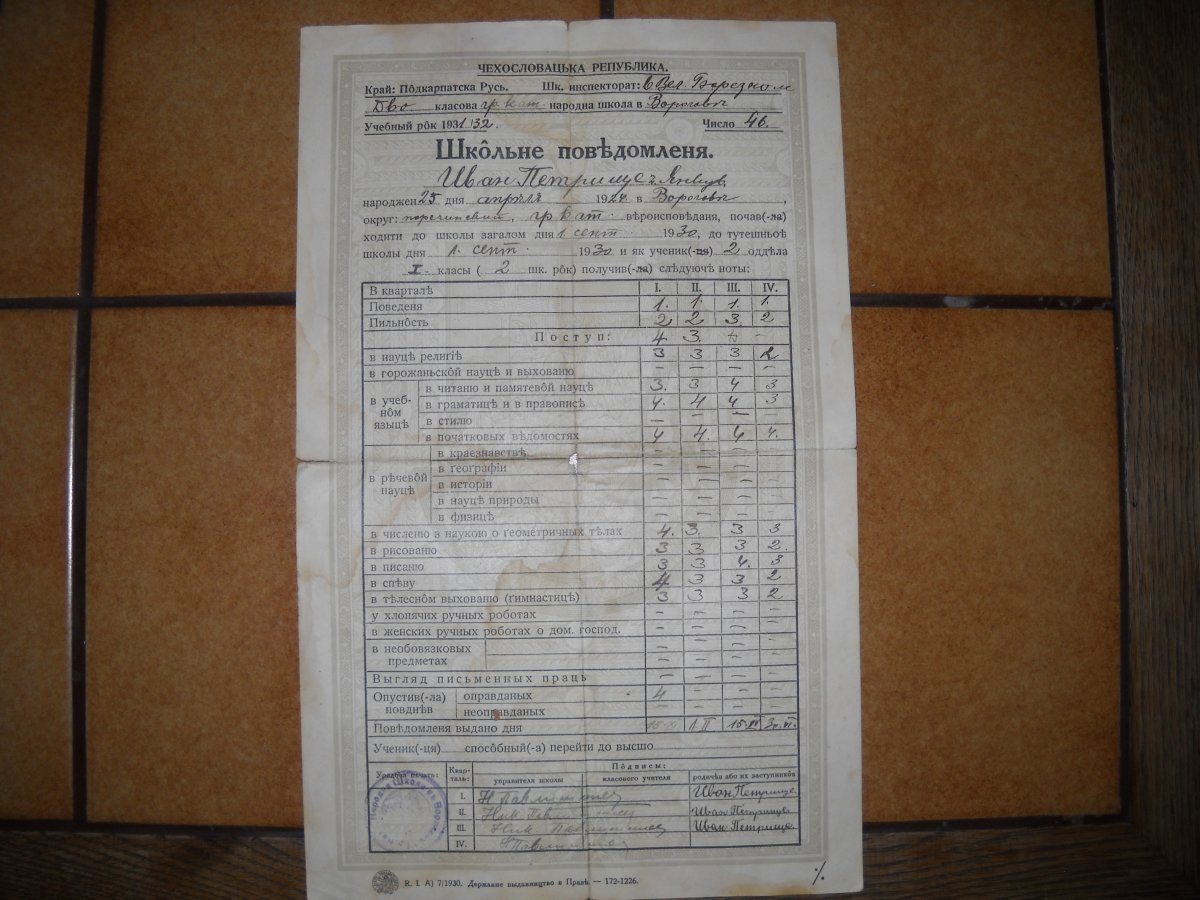 ЧЕХОСЛОВАЦЬКА РЕПУБЛИКА.
Край: Пôдкарпатска Русь. Шк. инспекторат: в Вел. Березном
Дво класова гр. кат. народна школа в Ворочовѣ
Учебный рôк 1931/32. Число 46.
Шкôльне повѣдомленя.
Иван Петрище
народжен 25 дня апрѣля 1924 в Ворочовѣ,
округ: перечинский, гр кат. вѣроисповѣданя, почав(-ла)
ходити до школы загалом дня 1 сент. 1930, до тутешньоѣ
школы дня 1. сент. 1930 и як ученик(-ця) 2 оддѣла
I. класы ( 2 шк. рôк) получив(-ла) слѣдуючѣ ноты:
В кварталѣ I. II. III. IV.
Поведеня 1. 1. 1. 1.
Пильнôсть 2 2 3. 2
Поступ: 4 3. —
в науцѣ религіѣ 3 3 3 2
в горожаньскôй науцѣ и выхованю — — — —
в учебнôм языцѣ
в читаню и памятевôй науцѣ 3. 3 4 3
в граматицѣ и в правописѣ 4. 4 4 3
в стилю — — — —
в початковых вѣдомостях 4 4. 4 4.
в рѣчевôй науцѣ
в краєзнавствѣ — — — —
в ґеоґрафіи — — — —
в исторіи — — — —
в науцѣ природы — — — —
в физицѣ — — — —
в численю з наукою о ґеометричных тѣлах 4. 3. 3 3
в рисованю 3 3 3 2.
в писаню 3 3 4. 3
в спѣву 4 3 3 2
в тѣлесном выхованю (ґимнастицѣ) 3 3 3 2
у хлопячих ручных роботах — — — —
в женских ручных роботах о дом. господ. — — — —
в необовязковых предметах — — —
— — — —
Выгляд письменных праць — — — —
Опустив(-ла) повднѣв
оправданых 4 — — —
неоправданых — — — —
Повѣдомленя выдано дня
Ученик(-ця) способный(-а) перейти до высшо
Урядова печать: Квар-таль: Пôдписы:
управителя школы класового учителя родичѣв або их заступникôв
I. Иван Петрище
II. Иван Петрище
III. Иван Петрище
IV.
R. I. A) 7/1930. Державне выдавництво в Празѣ — 172-1226.